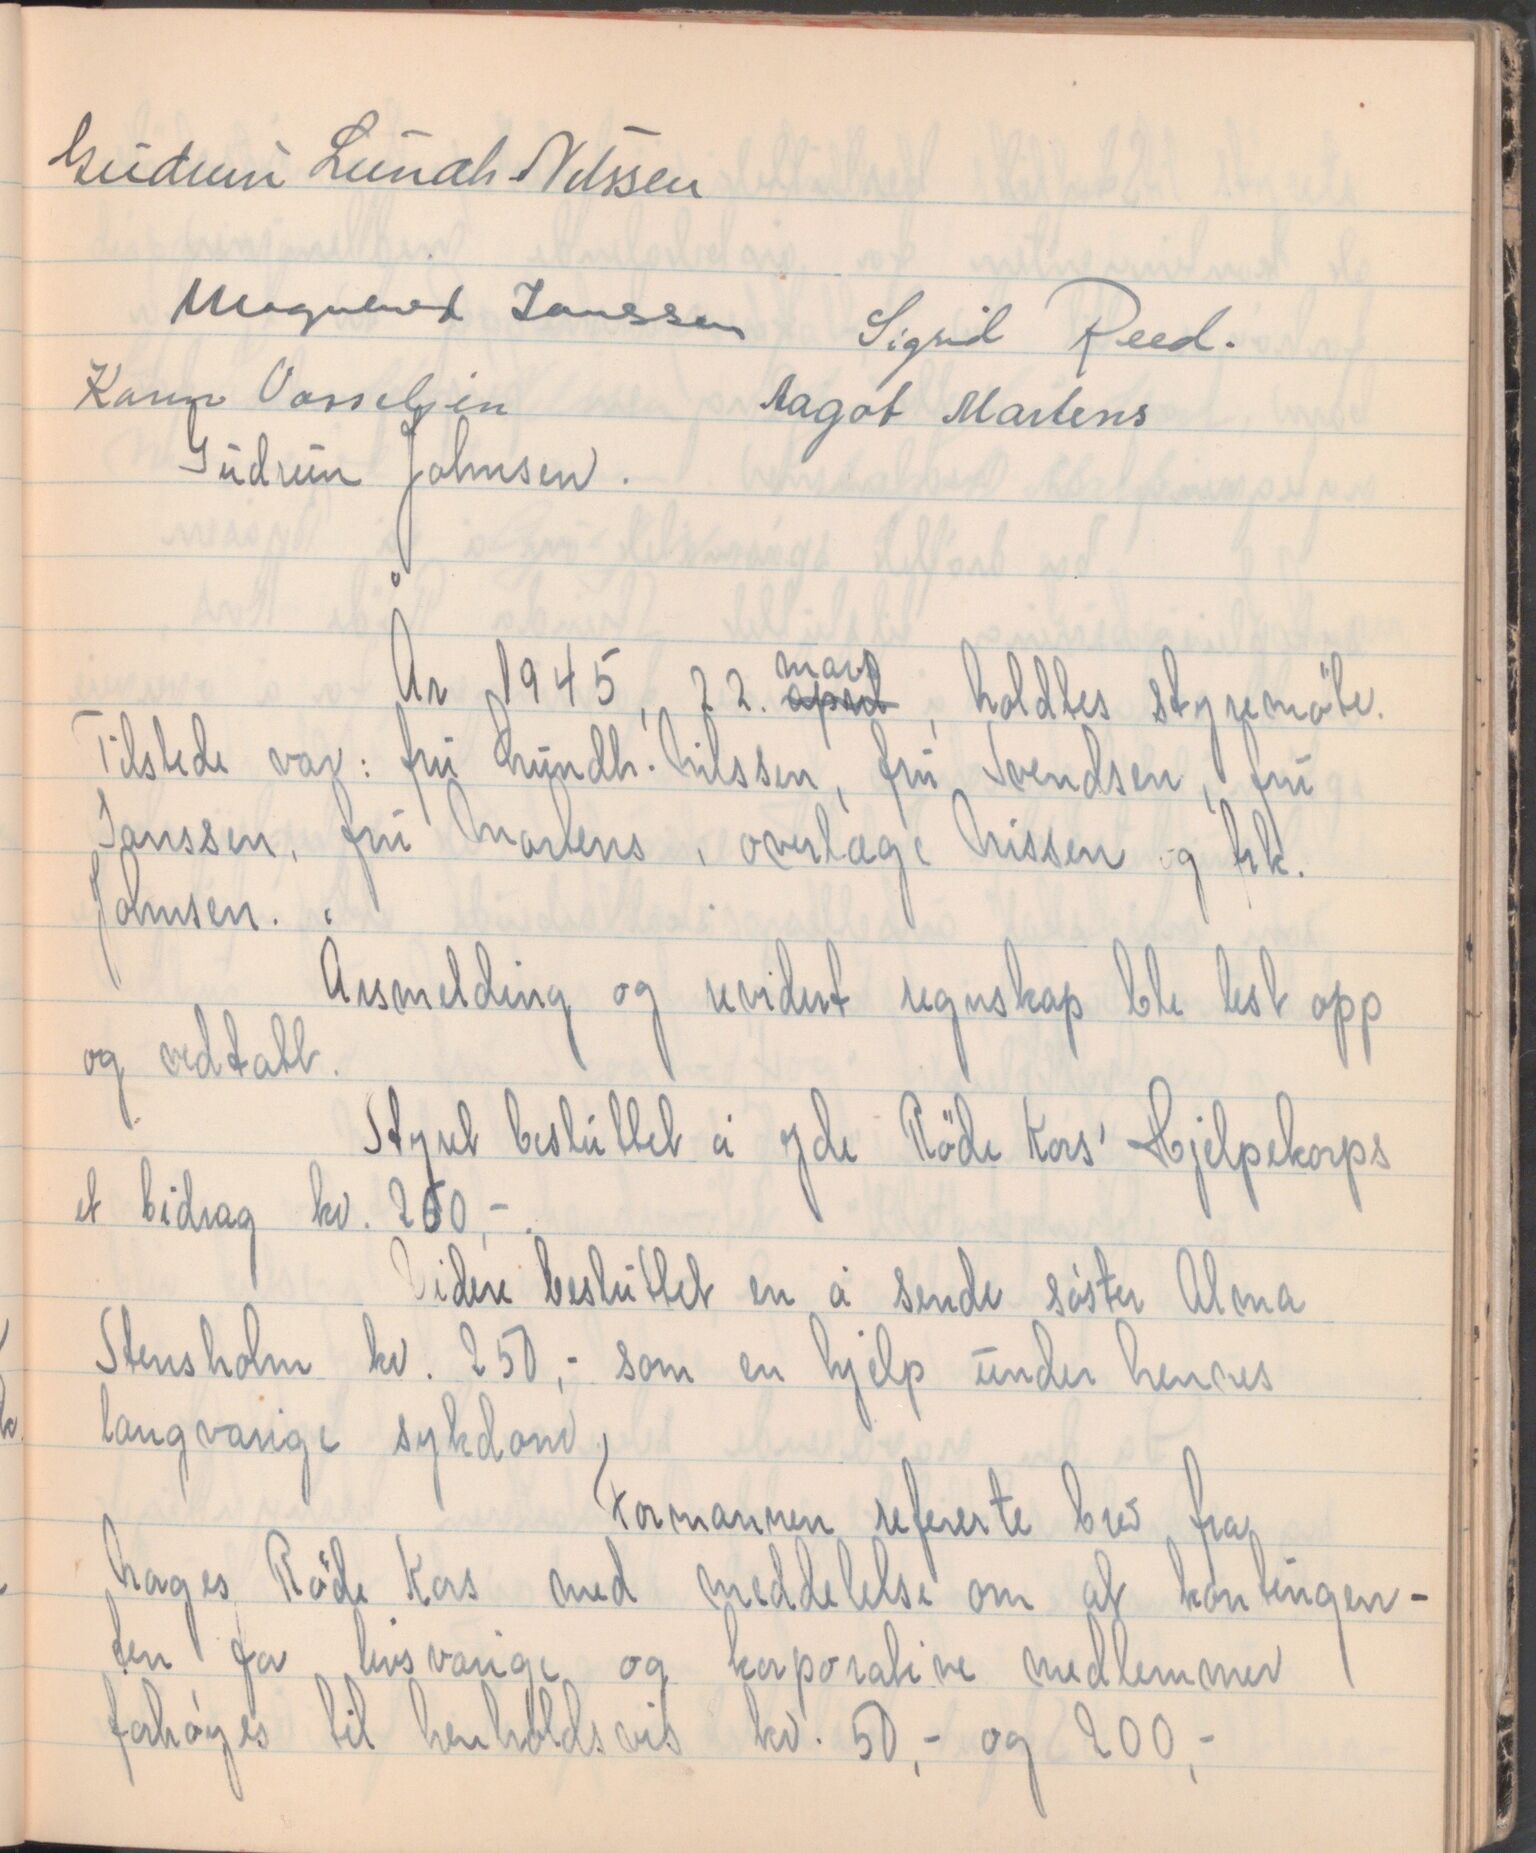 Gudrun Lundh-Nilssen
Magnhild Janssen Sigrid Reed.
Karen Vasseljen Aagot Martens
Gudrun Johnsen.
År 1945, 22. mars april, holdtes styremöte.
Tilstede var: fru Lundh-Nilssen, fru Svendsen, fru
Janssen, fru Martens, overlæge Nissen og frk.
Johnsen.
Årsmelding og revidert regnskap ble lest opp
og vedtatt.
Styret besluttet å yde Röde Kors' Hjelpekorps
et bidrag kr. 250,-.
Videre besluttet en å sende söster Alma
Stensholm kr. 250,- som en hjelp under hennes
langvarige sykdom.
Formannen refererte brev fra
Norges Röde Kors med meddelelse om at kontingen-
ten for livsvarige og korporative medlemmer
forhöyes til henholdsvis kr. 50,- og 200,-